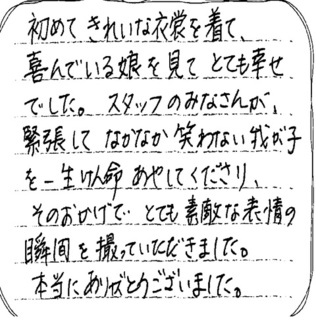 初めて きれいな衣裳を着て、
喜んでいる娘を見て とても幸せ
でした。 スタッフのみなさんが、
緊張して なかなか笑わない我が子
を一生けん命 あやしてくださり、
そのおかげで とても素敵な表情の
瞬間を撮っていただきました。
本当にありがとうございました。